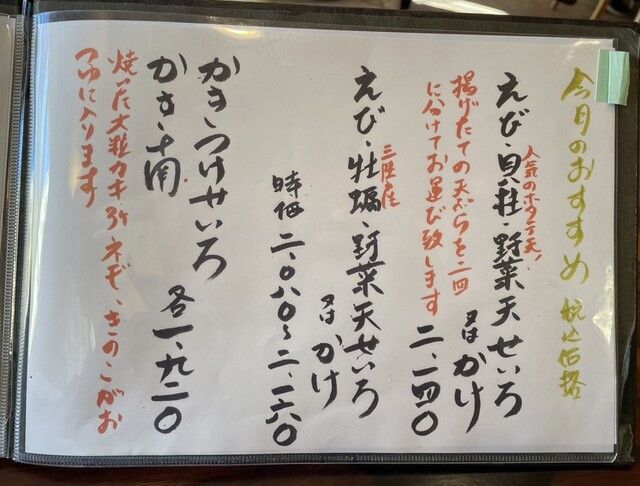 今月のおすすめ 税込価格
人気のホタテ天!
えび・貝柱・野菜天せいろ
又はかけ
二、一四〇
揚げたての天ぷらを二回
に分けてお運び致します
三陸産
えび・牡蠣・野菜天せいろ
又はかけ
時価 二、〇八〇~二、一六〇
かきつけせいろ
かき南
各一、九二〇
焼った大粒カキ3ケネギ、きのこがお
つゆに入ります